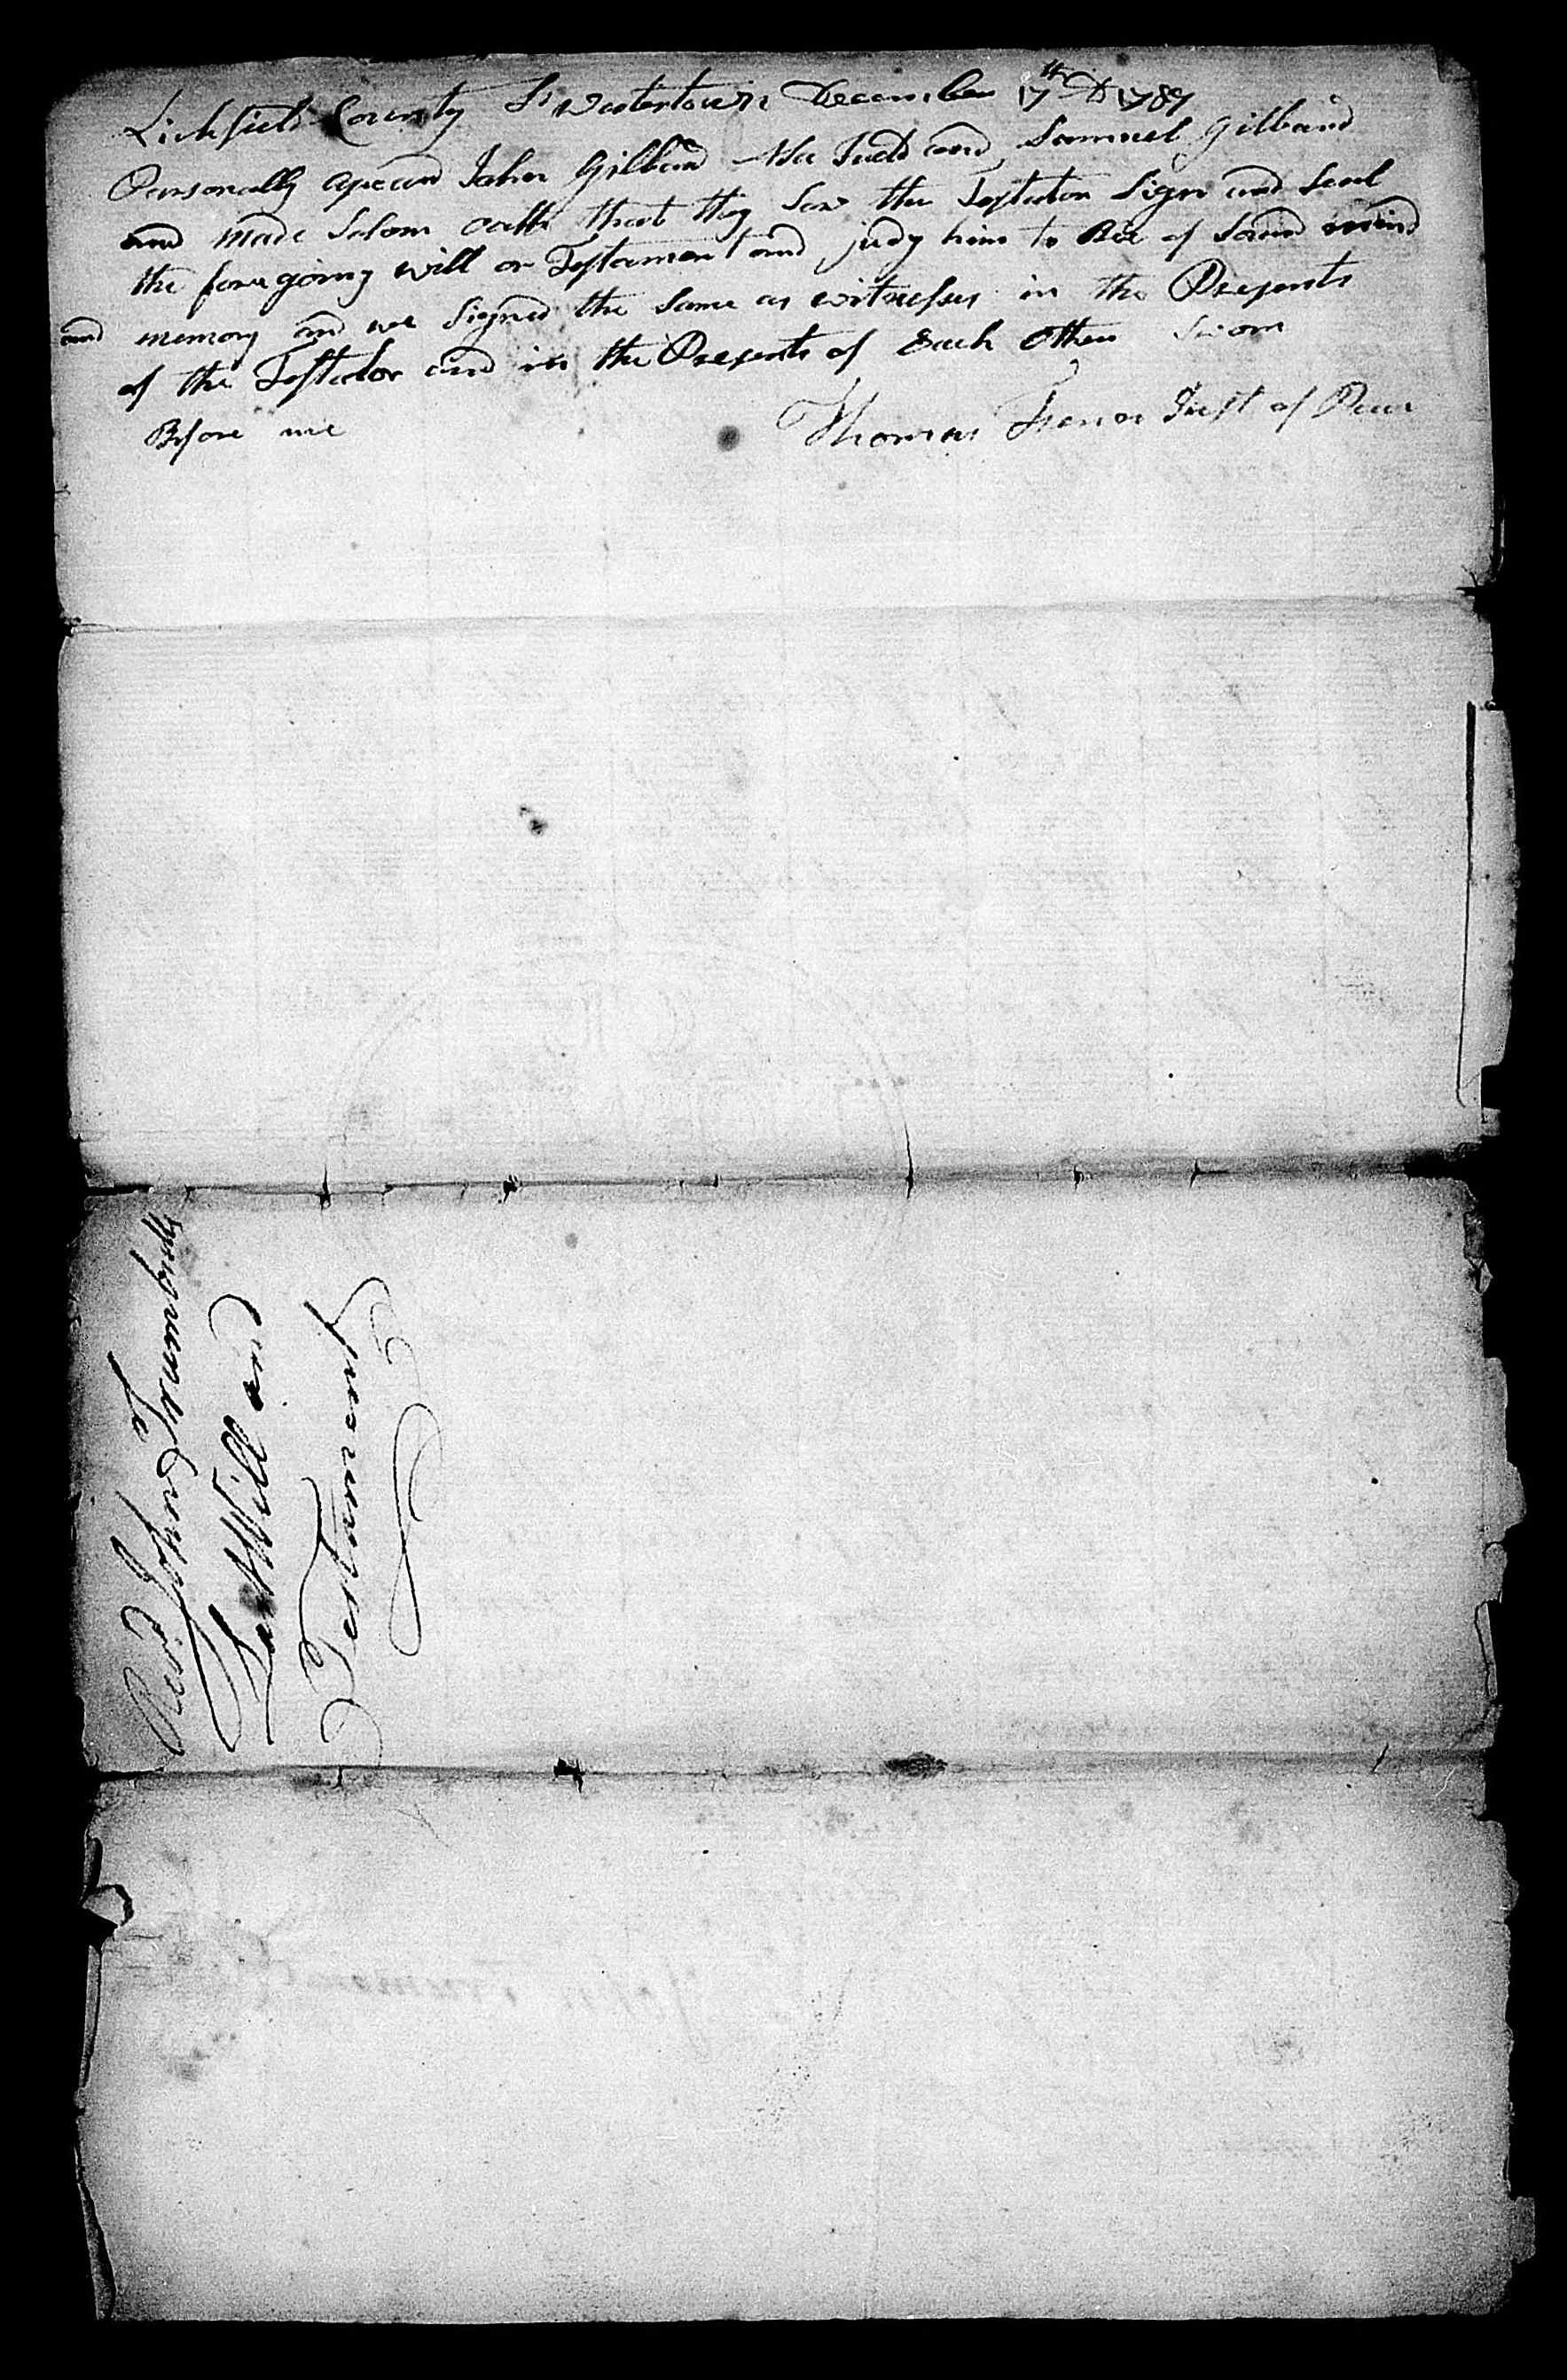 Lichfield County Ss Watertown December 17th D 1787
Parsonally apeard John Gilbard Asa Judd and Samuel Gilbard
and made Solom oath that they Saw the Testator Sign and Seal
the fore going will or Testament and judg him to Bee of Sound mind
and memory and we Signed the Same as witnesses in the Presents
of the Testator and in the Presents of Each Other Sworn
Before me Thomas Fenn Just of Peace
Revd John Trumbull's
Last Will and
Testament